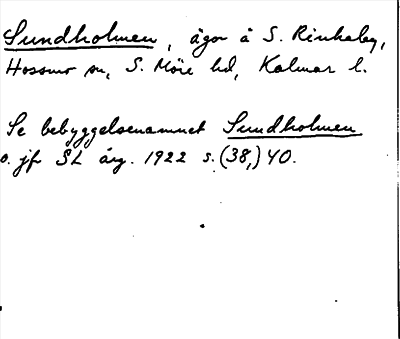 Sundholmen, ägor å S. Rinkaby,
Hossmo sn, S. Möre hd, Kalmar l.
Se bebyggelsenamnet Sundholmen
o. jfr SL årg. 1922 s. (38,) 40.